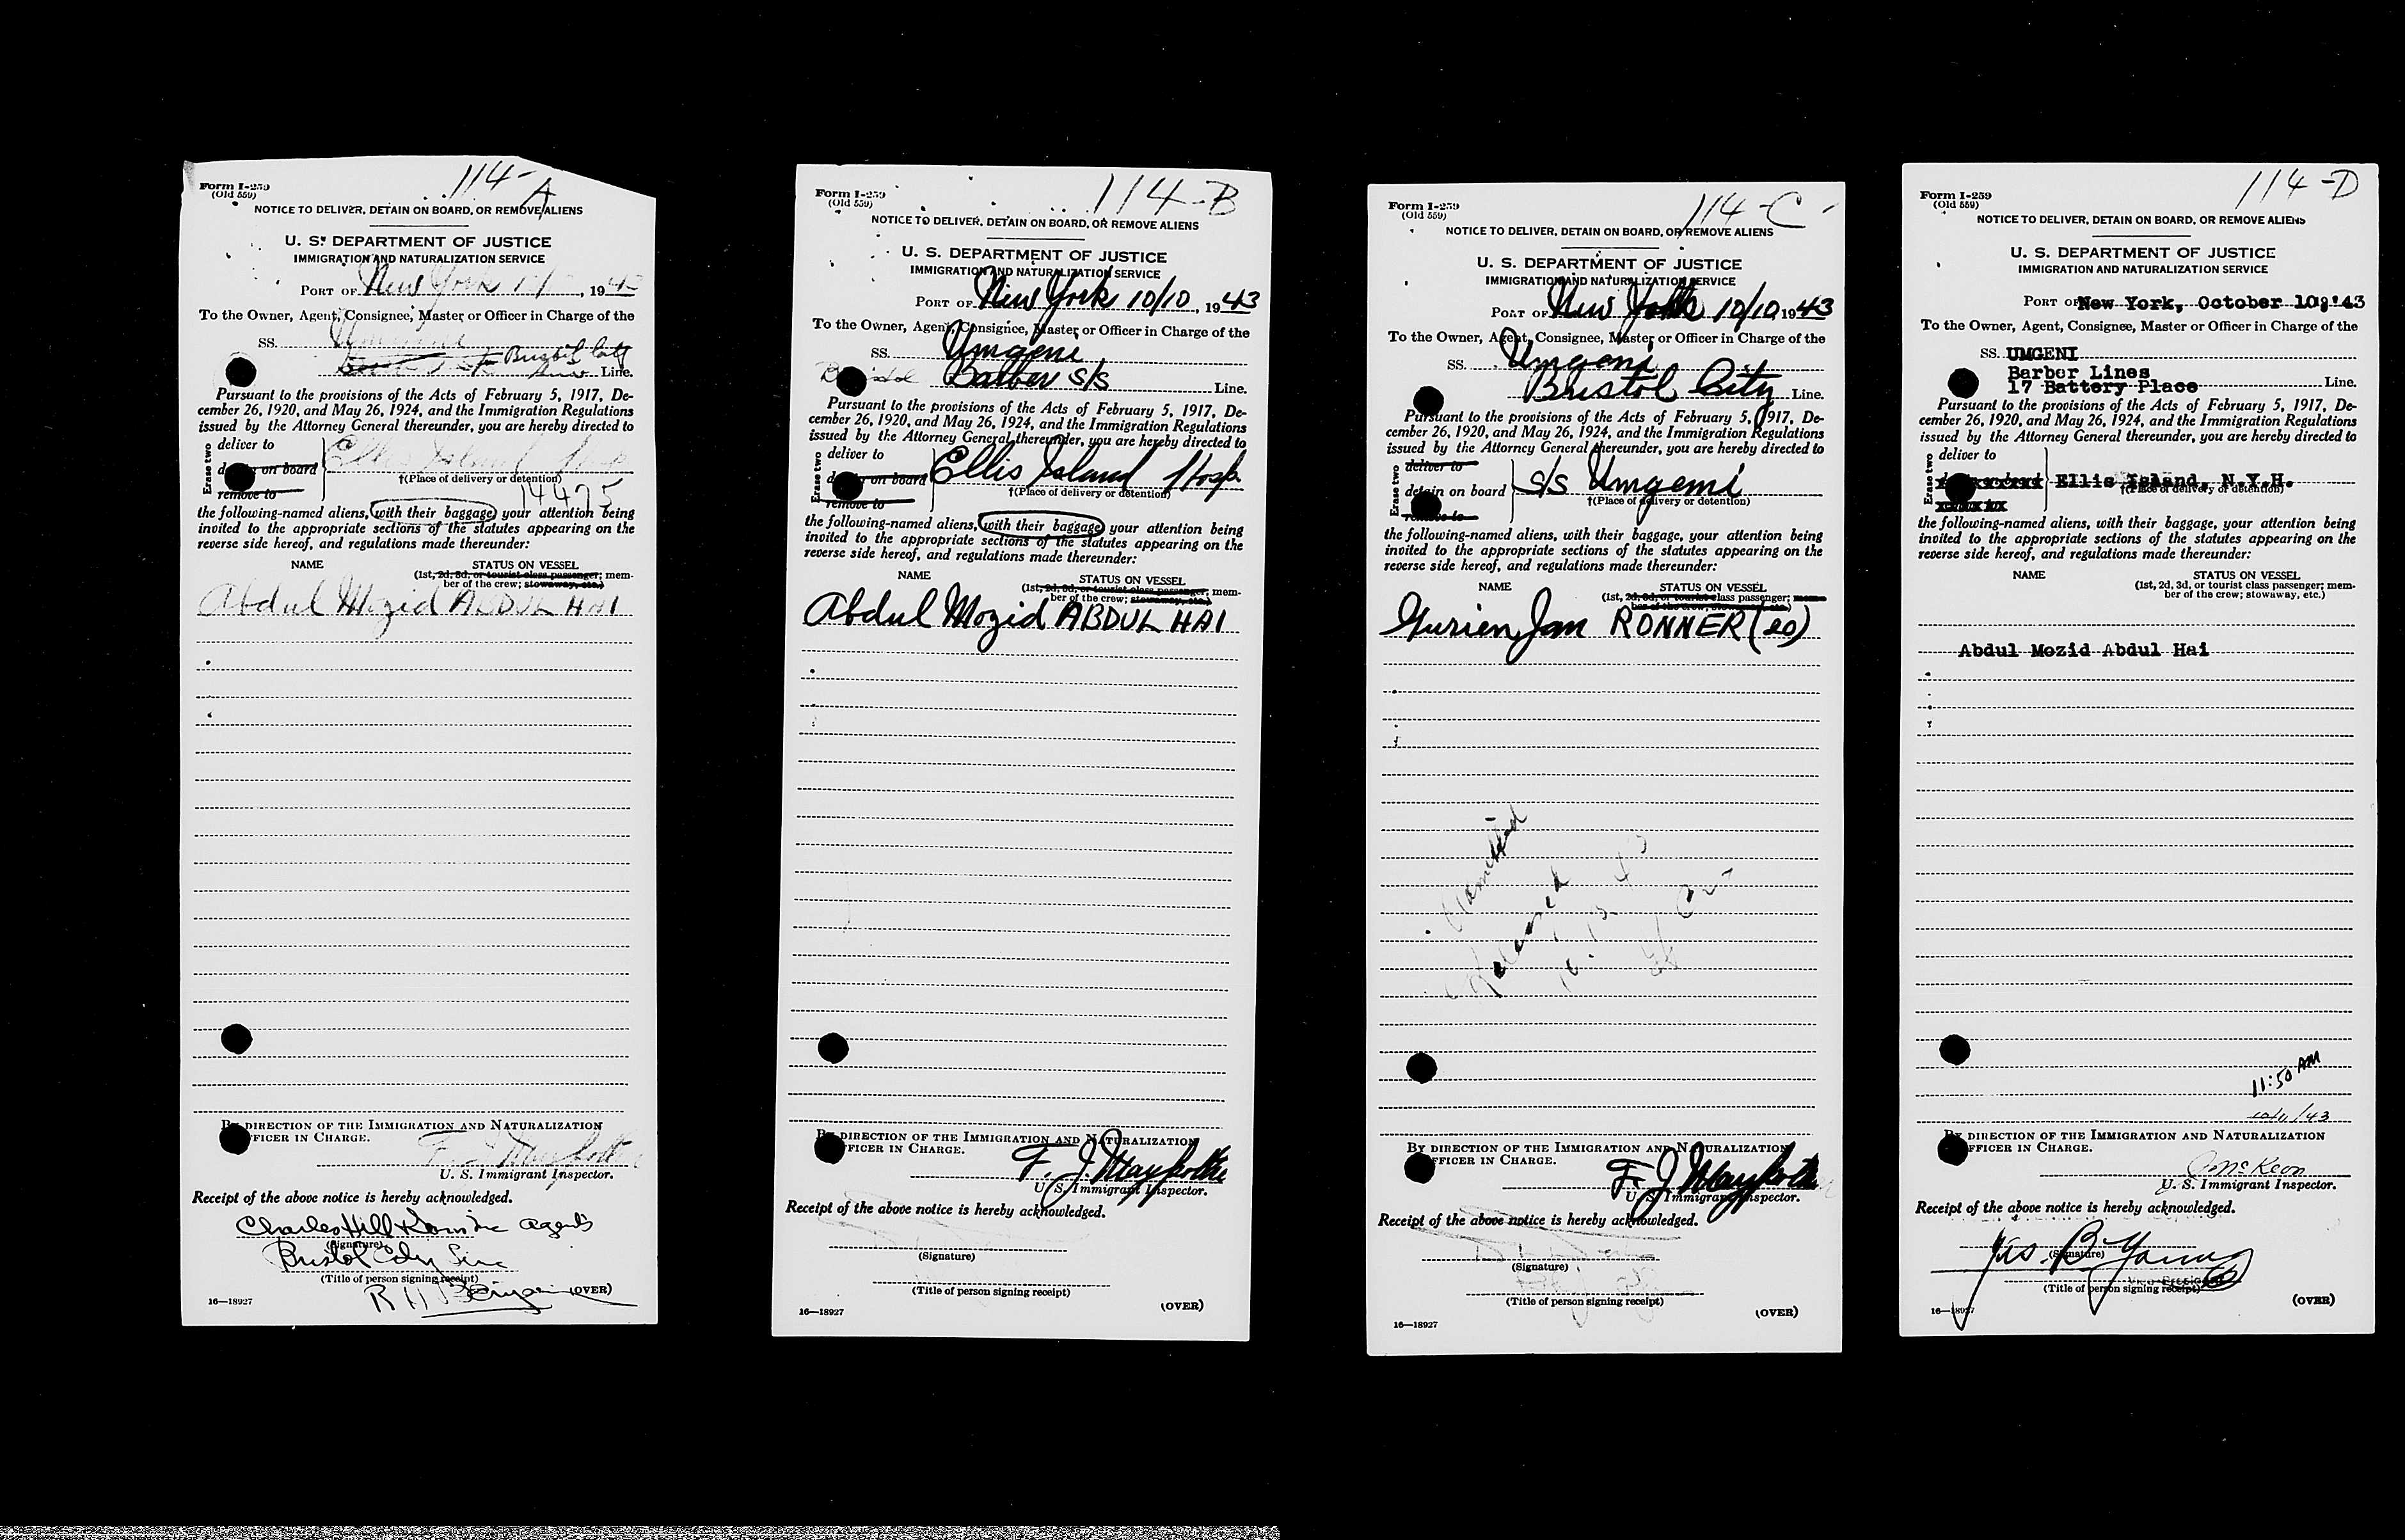 114-A
Form I-259
(Old 559)
NOTICE TO DELIVER, DETAIN ON BOARD, OR REMOVE ALIENS
U. S. DEPARTMENT OF JUSTICE
IMMIGRATION AND NATURALIZATION SERVICE
PORT OF New York, 1943
To the Owner, Agent, Consignee, Master or Officer in Charge of the
SS.
Bristol City
Line.
Pursuant to the provisions of the Acts of February 5, 1917, De-
cember 26, 1920, and May 26, 1924, and the Immigration Regulations
issued by the Attorney General thereunder, you are hereby directed to
Erase two
deliver to
on board
remove to
Ellis Island Hosp
†(Place of delivery or detention)
14475
the following-named aliens, with their baggage, your attention being
invited to the appropriate sections of the statutes appearing on the
reverse side hereof, and regulations made thereunder:
NAME STATUS ON VESSEL
(1st, 2d, 3d, or tourist class passenger; mem-
ber of the crew; stowaway, etc.)
Abdul Mozid ABDUL HAI
BY DIRECTION OF THE IMMIGRATION AND NATURALIZATION
OFFICER IN CHARGE.
U. S. Immigrant Inspector.
Receipt of the above notice is hereby acknowledged.
Charles Hill & Sons Inc agents
(Signature)
Bristol City Line
(Title of person signing receipt)
(OVER)
16—18927
114-B
Form I-259
(Old 559)
NOTICE TO DELIVER, DETAIN ON BOARD, OR REMOVE ALIENS
U. S. DEPARTMENT OF JUSTICE
IMMIGRATION AND NATURALIZATION SERVICE
PORT OF New York 10/10, 1943
To the Owner, Agent, Consignee, Master or Officer in Charge of the
SS. Umgeni
Barber S/S Line.
Pursuant to the provisions of the Acts of February 5, 1917, De-
cember 26, 1920, and May 26, 1924, and the Immigration Regulations
issued by the Attorney General thereunder, you are hereby directed to
Erase two
deliver to
on board
remove to
Ellis Island Hosp
†(Place of delivery or detention)
the following-named aliens, with their baggage, your attention being
invited to the appropriate sections of the statutes appearing on the
reverse side hereof, and regulations made thereunder:
NAME STATUS ON VESSEL
(1st, 2d, 3d, or tourist class passenger; mem-
ber of the crew; stowaway, etc.)
Abdul Mozid ABDUL HAI
BY DIRECTION OF THE IMMIGRATION AND NATURALIZATION
OFFICER IN CHARGE.
F. J.
U. S. Immigrant Inspector.
Receipt of the above notice is hereby acknowledged.
(Signature)
(Title of person signing receipt)
16—18927 (OVER)
114-C
Form I-259
(Old 559)
NOTICE TO DELIVER, DETAIN ON BOARD, OR REMOVE ALIENS
U. S. DEPARTMENT OF JUSTICE
IMMIGRATION AND NATURALIZATION SERVICE
PORT OF New York 10/10 1943
To the Owner, Agent, Consignee, Master or Officer in Charge of the
SS. Umgeni
Bristol City Line.
Pursuant to the provisions of the Acts of February 5, 1917, De-
cember 26, 1920, and May 26, 1924, and the Immigration Regulations
issued by the Attorney General thereunder, you are hereby directed to
Erase two
deliver to
detain on board
remove to
S/S Umgeni
†(Place of delivery or detention)
the following-named aliens, with their baggage, your attention being
invited to the appropriate sections of the statutes appearing on the
reverse side hereof, and regulations made thereunder:
NAME STATUS ON VESSEL
(1st, 2d, 3d, or tourist class passenger; mem-
ber of the crew, stowaway, etc.)
Jan RONNER (20)
BY DIRECTION OF THE IMMIGRATION AND NATURALIZATION
OFFICER IN CHARGE.
F. J.
U. S. Immigrant Inspector.
Receipt of the above notice is hereby acknowledged.
(Signature)
(Title of person signing receipt)
16—18927 (OVER)
114-D
Form I-259
(Old 559)
NOTICE TO DELIVER, DETAIN ON BOARD, OR REMOVE ALIENS
U. S. DEPARTMENT OF JUSTICE
IMMIGRATION AND NATURALIZATION SERVICE
PORT OF New York, October 10, '43
To the Owner, Agent, Consignee, Master or Officer in Charge of the
SS. UMGENI
Barber Lines
17 Battery Place Line.
Pursuant to the provisions of the Acts of February 5, 1917, De-
cember 26, 1920, and May 26, 1924, and the Immigration Regulations
issued by the Attorney General thereunder, you are hereby directed to
Erase two
deliver to
Ellis Island, N.Y.H.
†(Place of delivery or detention)
the following-named aliens, with their baggage, your attention being
invited to the appropriate sections of the statutes appearing on the
reverse side hereof, and regulations made thereunder:
NAME STATUS ON VESSEL
(1st, 2d, 3d, or tourist class passenger; mem-
ber of the crew; stowaway, etc.)
Abdul Mozid Abdul Hai
11:50 AM
BY DIRECTION OF THE IMMIGRATION AND NATURALIZATION
OFFICER IN CHARGE.
McKeon
U. S. Immigrant Inspector.
Receipt of the above notice is hereby acknowledged.
Jas. B. Young
(Signature)
Vice President
(Title of person signing receipt)
(OVER)
16—18927